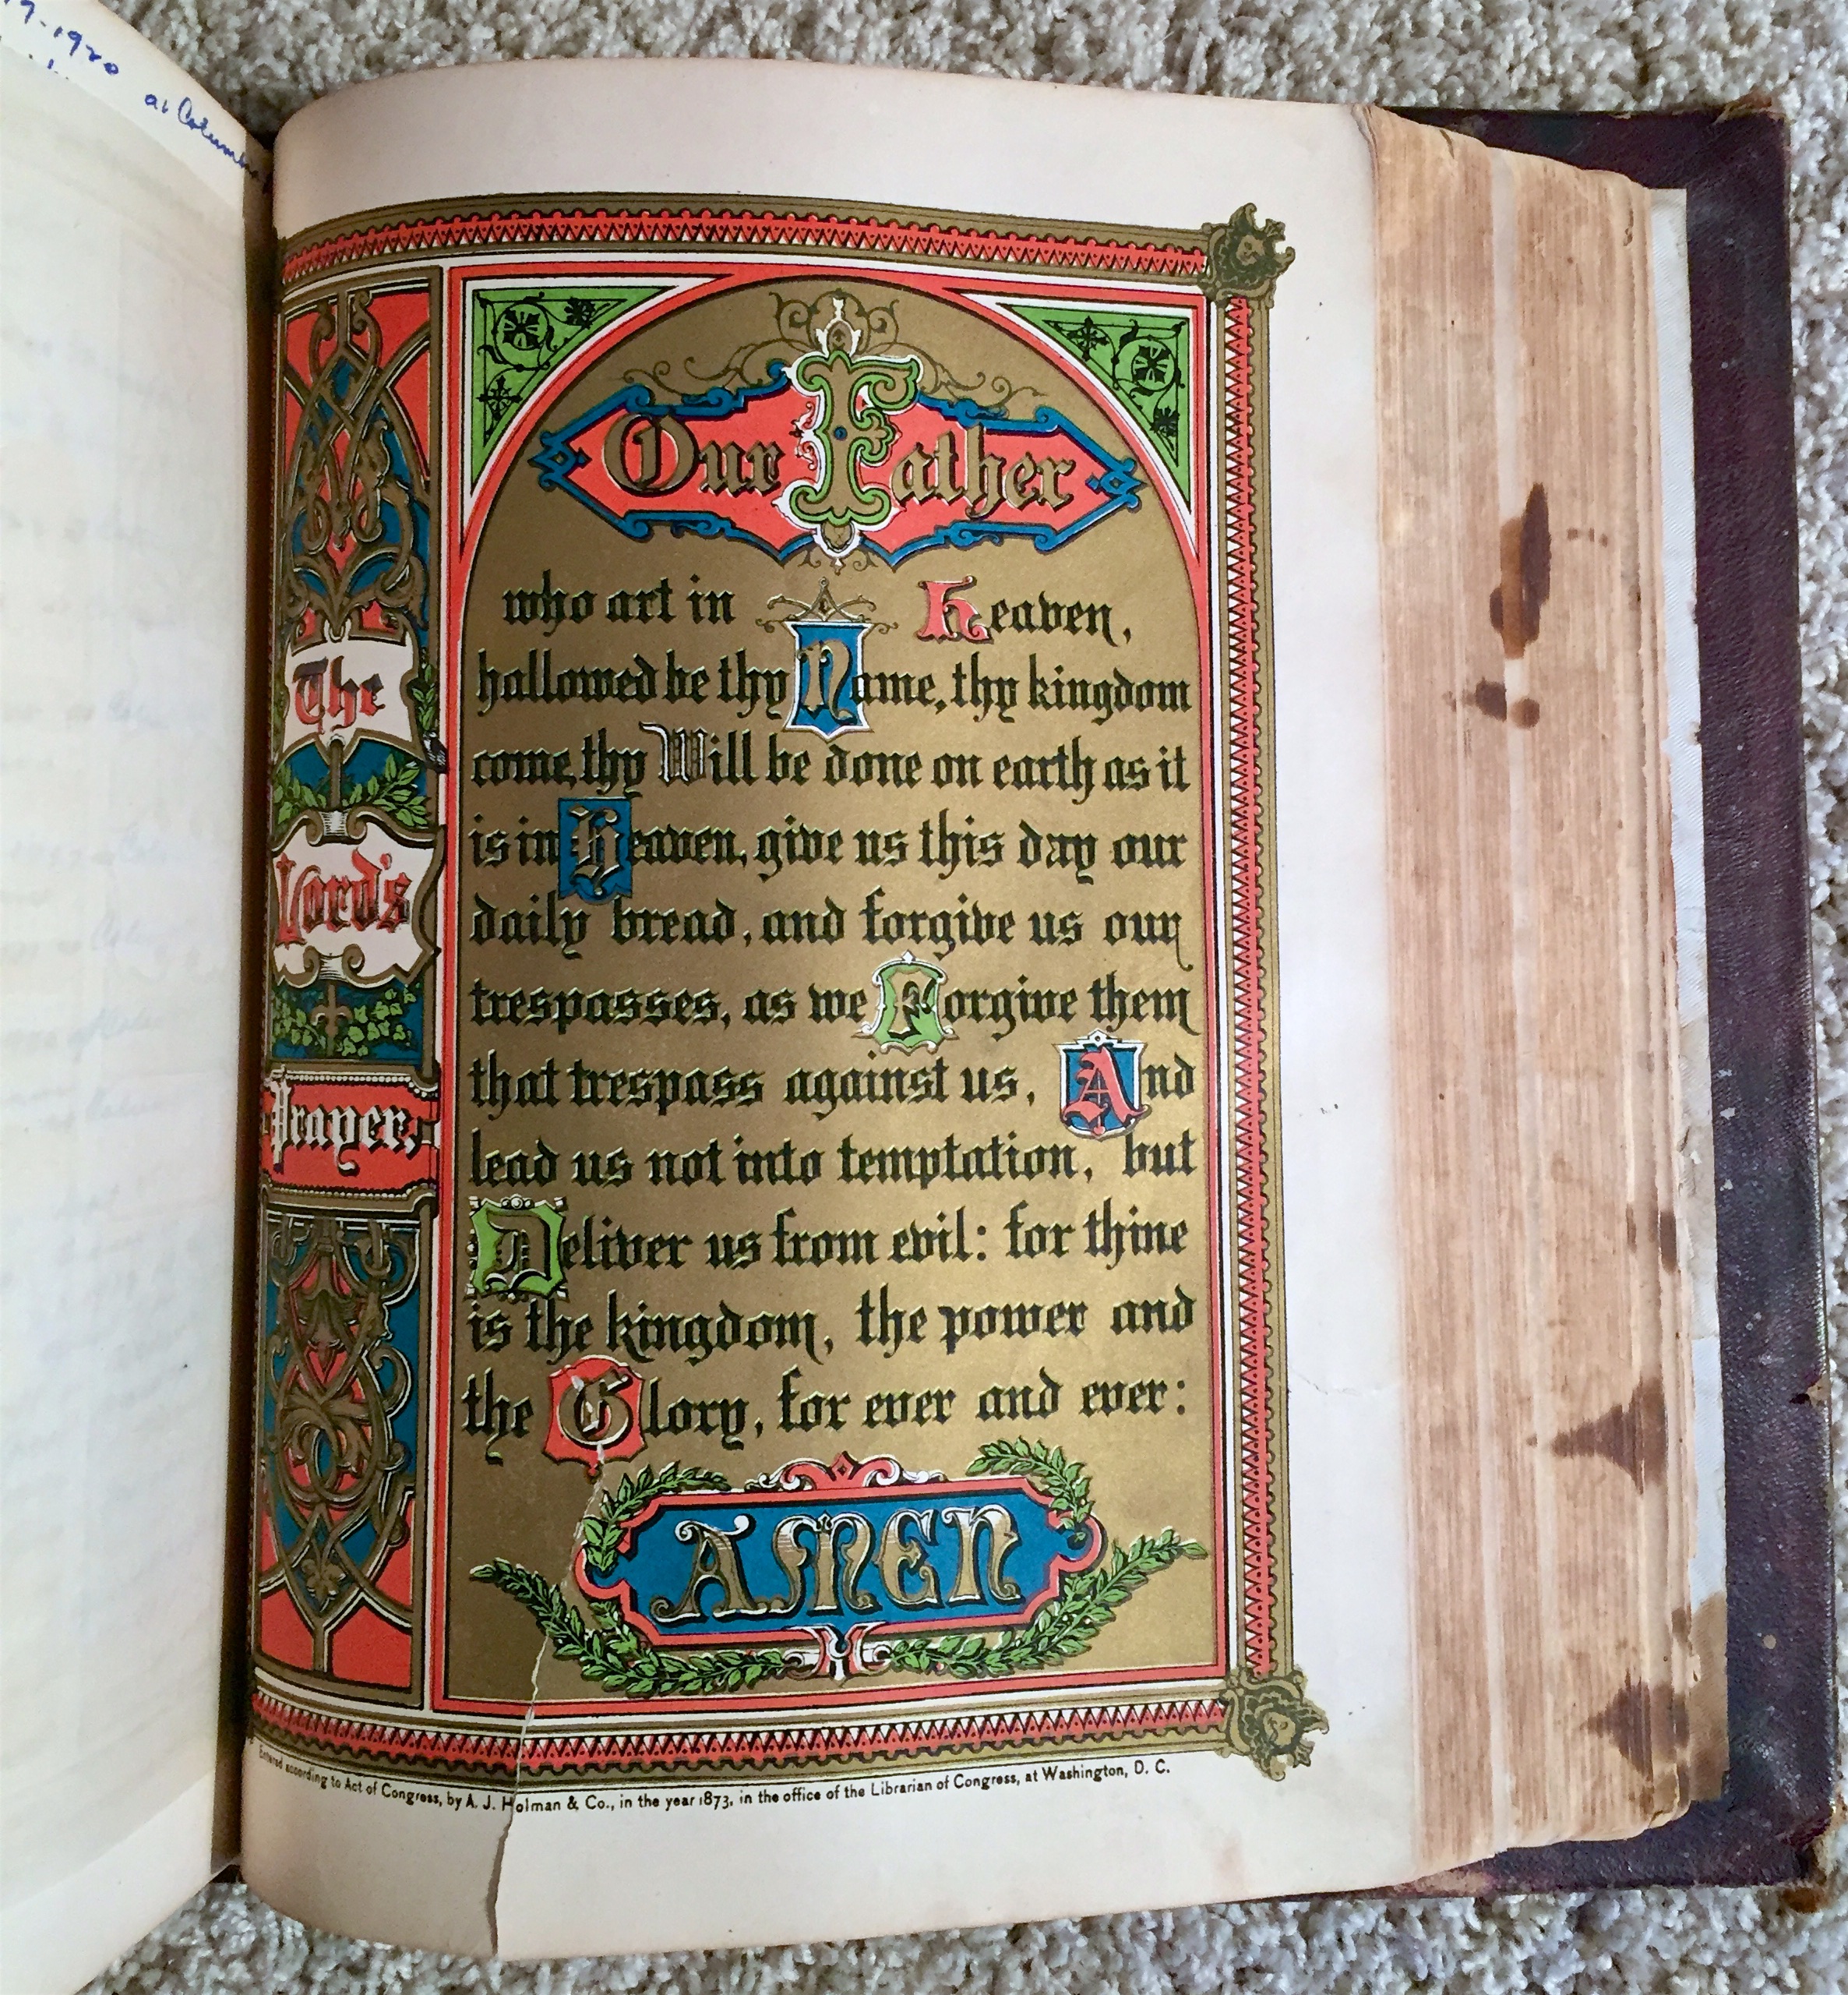 at
The
Lord's
Prayer,
Our Father
who art in Heaven,
hallowed be thy Name, thy kingdom
come, thy Will be done on earth as it
is in Heaven, give us this day our
daily bread, and forgive us our
trespasses, as we Forgive them
that trespass against us, And
lead us not into temptation, but
Deliver us from evil: for thine
is the kingdom, the power and
the Glory, for ever and ever:
AMEN
Entered according to Act of Congress, by A. J. Holman & Co., in the year 1873, in the office of the Librarian of Congress, at Washington, D. C.